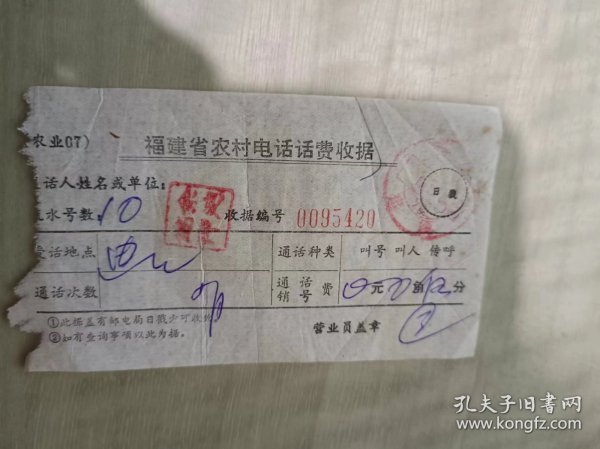 农业07)
福建省农村电话话费收据
话人姓名或单位:
水号数 10
收据编号 0095420
日戳
话地点
通话种类 叫号 叫人 传呼
通话次数
通话费
销号
元 角 分
①此据盖有邮电局日戳方可收
②如有查询事项以此为据。
营业员盖章
孔夫子旧书网
www.kongfz.com